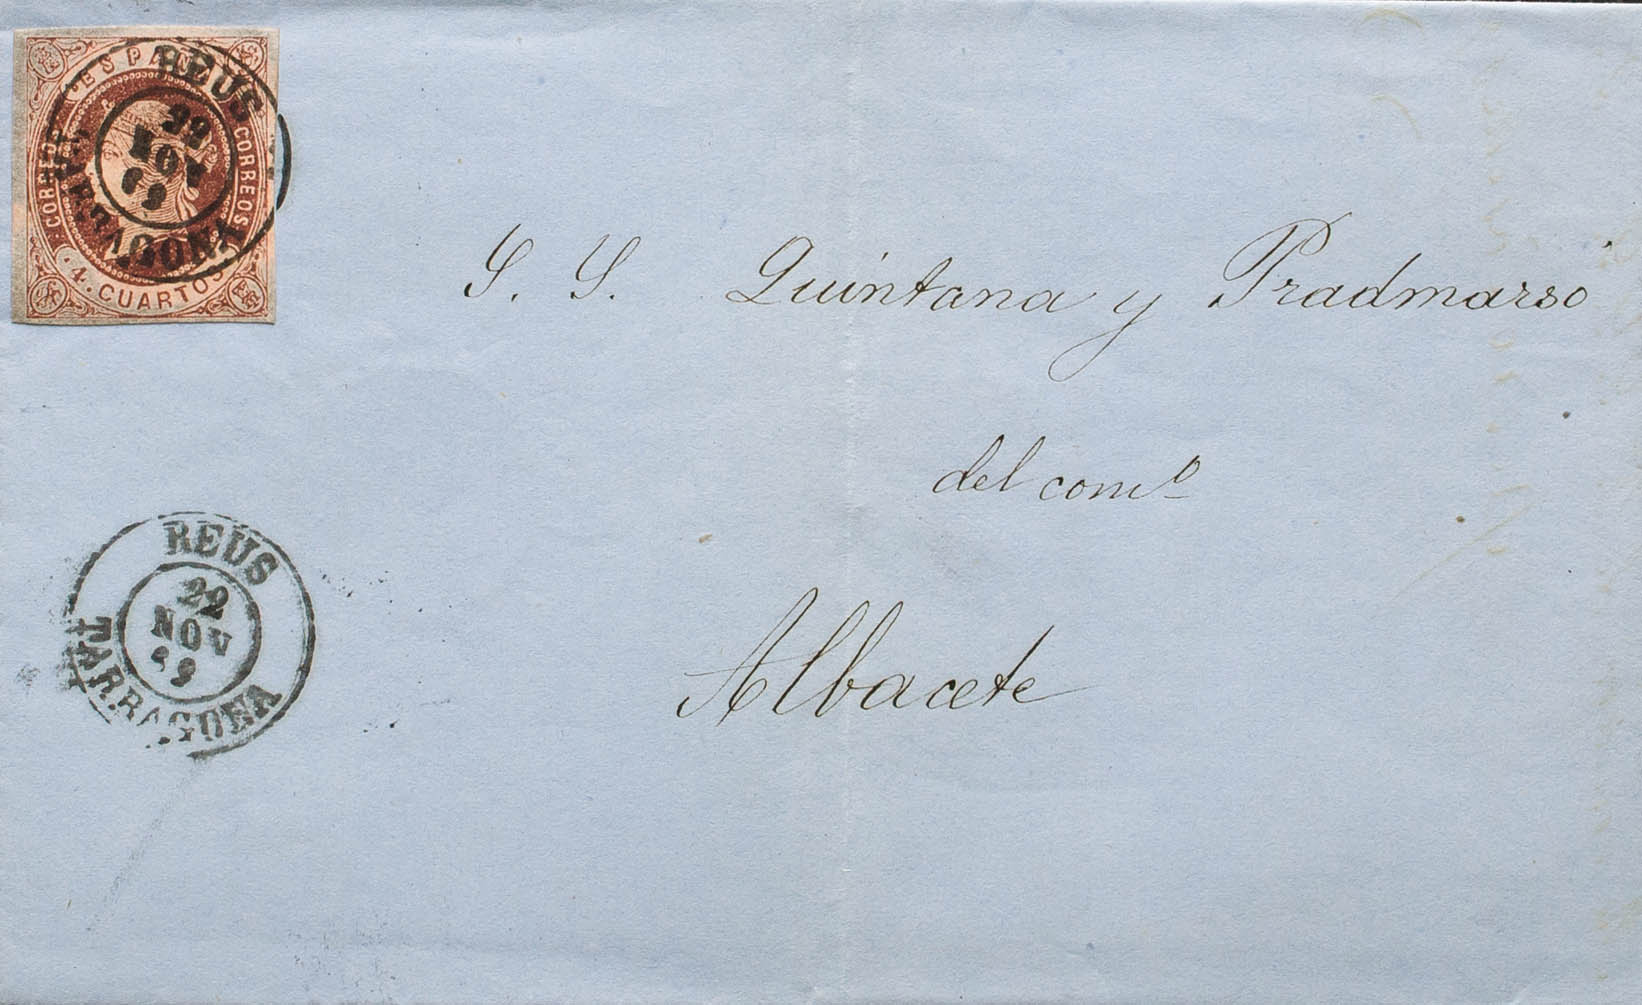 ESPAÑA
CORREOS
CORREOS
4. CUARTOS
REUS
22
NOV
69
TARRAGONA
S. S. Quintana y Pradmarso
del comº
Albacete
REUS
22
NOV
69
TARRAGONA